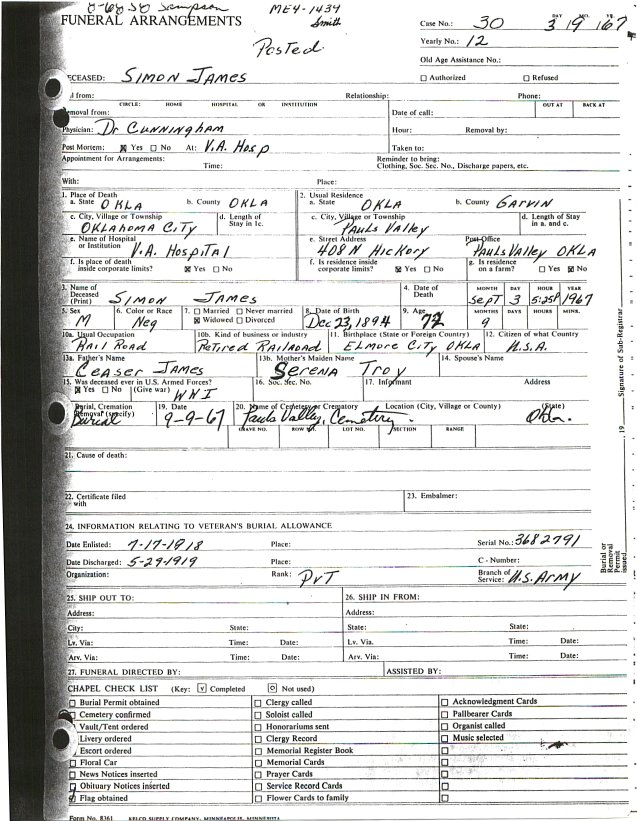 8-68 50 Sampson
ME4-1434
Smith
FUNERAL ARRANGEMENTS
Posted
Case No.: 30 DAY 3 MO. 9 YR. 67
Yearly No.: 12
Old Age Assistance No.:
Authorized Refused
DECEASED: SIMON JAMES
from: Relationship: Phone:
CIRCLE: HOME HOSPITAL OR INSTITUTION OUT AT BACK AT
Removal from: Date of call:
Physician: Dr CUNNINGHAM Hour: Removal by:
Post Mortem: ☒ Yes ☐ No At: V.A. Hosp Taken to:
Appointment for Arrangements: Time: Reminder to bring: Clothing, Soc. Sec. No., Discharge papers, etc.
With: Place:
1. Place of Death a. State OKLA b. County OKLA 2. Usual Residence a. State OKLA b. County GARVIN
c. City, Village or Township OKLAHOMA CITY d. Length of Stay in 1c. c. City, Village or Township PAULS VALLEY d. Length of Stay in a. and c.
e. Name of Hospital or Institution V.A. HOSPITAL e. Street Address 408 N HICKORY Post Office PAULS VALLEY OKLA
f. Is place of death inside corporate limits? ☒ Yes ☐ No f. Is residence inside corporate limits? ☒ Yes ☐ No g. Is residence on a farm? ☐ Yes ☒ No
3. Name of Deceased (Print) SIMON JAMES 4. Date of Death MONTH DAY HOUR YEAR Sept 3 5:25P 1967
5. Sex M 6. Color or Race Neg 7. ☐ Married ☐ Never married ☒ Widowed ☐ Divorced 8. Date of Birth Dec 23, 1894 9. Age 72 MONTHS 9 DAYS HOURS MINS.
10a. Usual Occupation RAIL ROAD 10b. Kind of business or industry RETIRED RAILROAD 11. Birthplace (State or Foreign Country) ELMORE CITY OKLA 12. Citizen of what Country U.S.A.
13a. Father's Name CEASER JAMES 13b. Mother's Maiden Name SERENA TROY 14. Spouse's Name
15. Was deceased ever in U.S. Armed Forces? ☒ Yes ☐ No (Give war) WWI 16. Soc. Sec. No. 17. Informant Address
Burial, Cremation Removal (specify) Burial 19. Date 9-9-67 20. Name of Cemetery or Crematory Pauls Valley Cemetery Location (City, Village or County) (State) Okla.
GRAVE NO. ROW NO. LOT NO. SECTION RANGE
21. Cause of death:
22. Certificate filed with 23. Embalmer:
24. INFORMATION RELATING TO VETERAN'S BURIAL ALLOWANCE
Date Enlisted: 7-17-1918 Place: Serial No.: 3682791
Date Discharged: 5-29-1919 Place: C - Number:
Organization: Rank: PVT Branch of Service: U.S. ARMY
25. SHIP OUT TO: 26. SHIP IN FROM:
Address: Address:
City: State: State: State:
Lv. Via: Time: Date: Lv. Via. Time: Date:
Arv. Via: Time: Date: Arv. Via: Time: Date:
27. FUNERAL DIRECTED BY: ASSISTED BY:
CHAPEL CHECK LIST (Key: ☑ Completed Not used)
Burial Permit obtained Clergy called Acknowledgment Cards
Cemetery confirmed Soloist called Pallbearer Cards
Vault/Tent ordered Honorariums sent Organist called
Livery ordered Clergy Record Music selected
Escort ordered Memorial Register Book
Floral Car Memorial Cards
News Notices inserted Prayer Cards
Obituary Notices inserted Service Record Cards
Flag obtained Flower Cards to family
Form No. 8361 KELCO SUPPLY COMPANY, MINNEAPOLIS, MINNESOTA
Signature of Sub-Registrar
19
Burial or Removal Permit issued